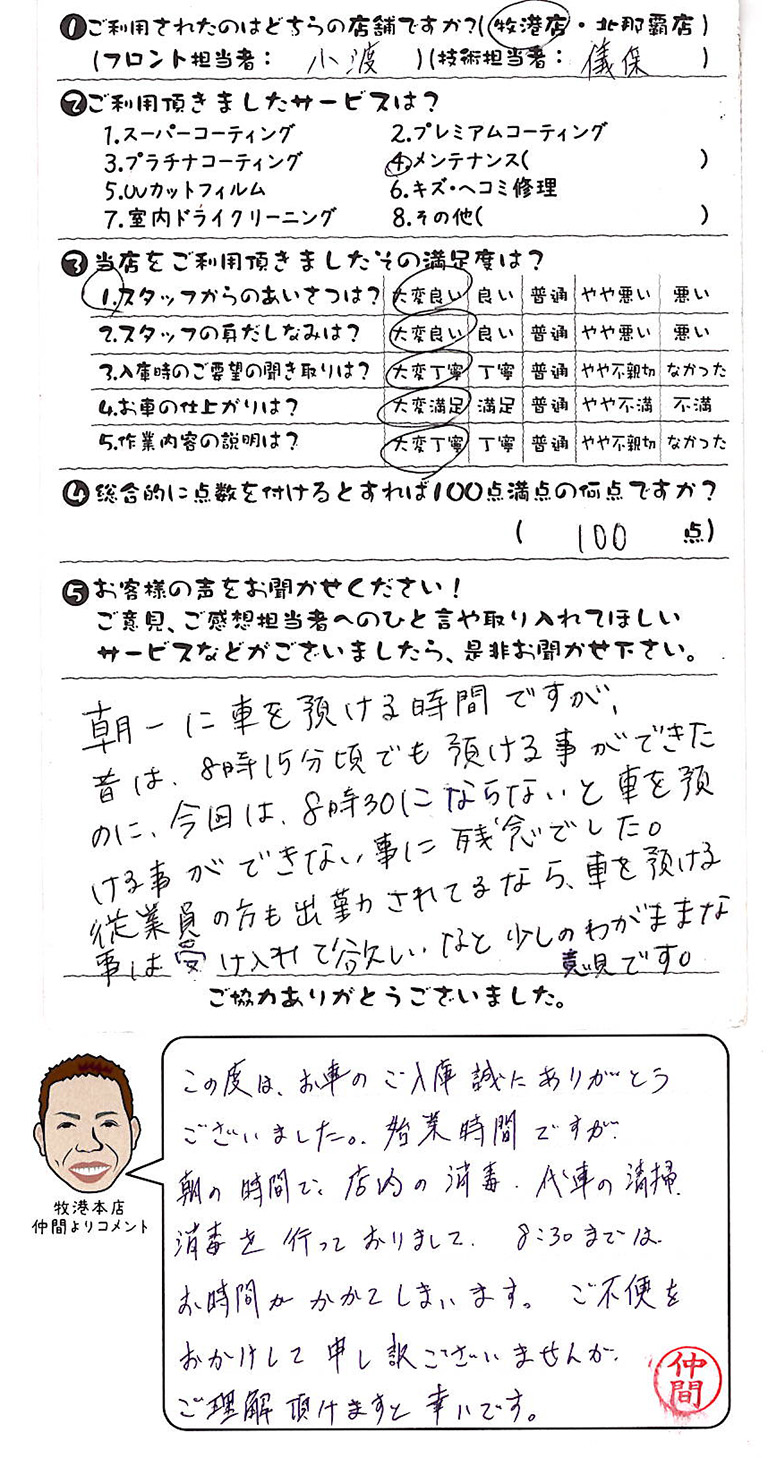 ❶ご利用されたのはどちらの店舗ですか?(牧港店・北那覇店)
(フロント担当者： 小渡 )(技術担当者： 儀保 )
❷ご利用頂きましたサービスは？
1.スーパーコーティング 2.プレミアムコーティング
3.プラチナコーティング 4.メンテナンス( )
5.UVカットフィルム 6.キズ・ヘコミ修理
7.室内ドライクリーニング 8.その他( )
❸当店をご利用頂きましたその満足度は？
1.スタッフからのあいさつは？ 大変良い 良い 普通 やや悪い 悪い
2.スタッフの身だしなみは？ 大変良い 良い 普通 やや悪い 悪い
3.入庫時のご要望の聞き取りは？ 大変丁寧 丁寧 普通 やや不親切 なかった
4.お車の仕上がりは？ 大変満足 満足 普通 やや不満 不満
5.作業内容の説明は？ 大変丁寧 丁寧 普通 やや不親切 なかった
❹総合的に点数を付けるとすれば100点満点の何点ですか？
( 100 点)
❺お客様の声をお聞かせください！
ご意見、ご感想担当者へのひと言や取り入れてほしい
サービスなどがございましたら、是非お聞かせ下さい。
朝一に車を預ける時間ですが、
昔は、8時15分頃でも預ける事ができた
のに、今回は、8時30にならないと車を預
ける事ができない事に残念でした。
従業員の方も出勤されてるなら、車を預ける
事は受け入れて欲しいなと少しのわがままな
意見です。
ご協力ありがとうございました。
この度は、お車のご入庫誠にありがとう
ございました。始業時間ですが、
朝の時間で、店内の消毒、代車の清掃、
消毒を行っておりまして、8:30までは
お時間がかかてしまいます。ご不便を
おかけして申し訳ございませんが、
ご理解頂けますと幸いです。
仲間
牧港本店
仲間よりコメント